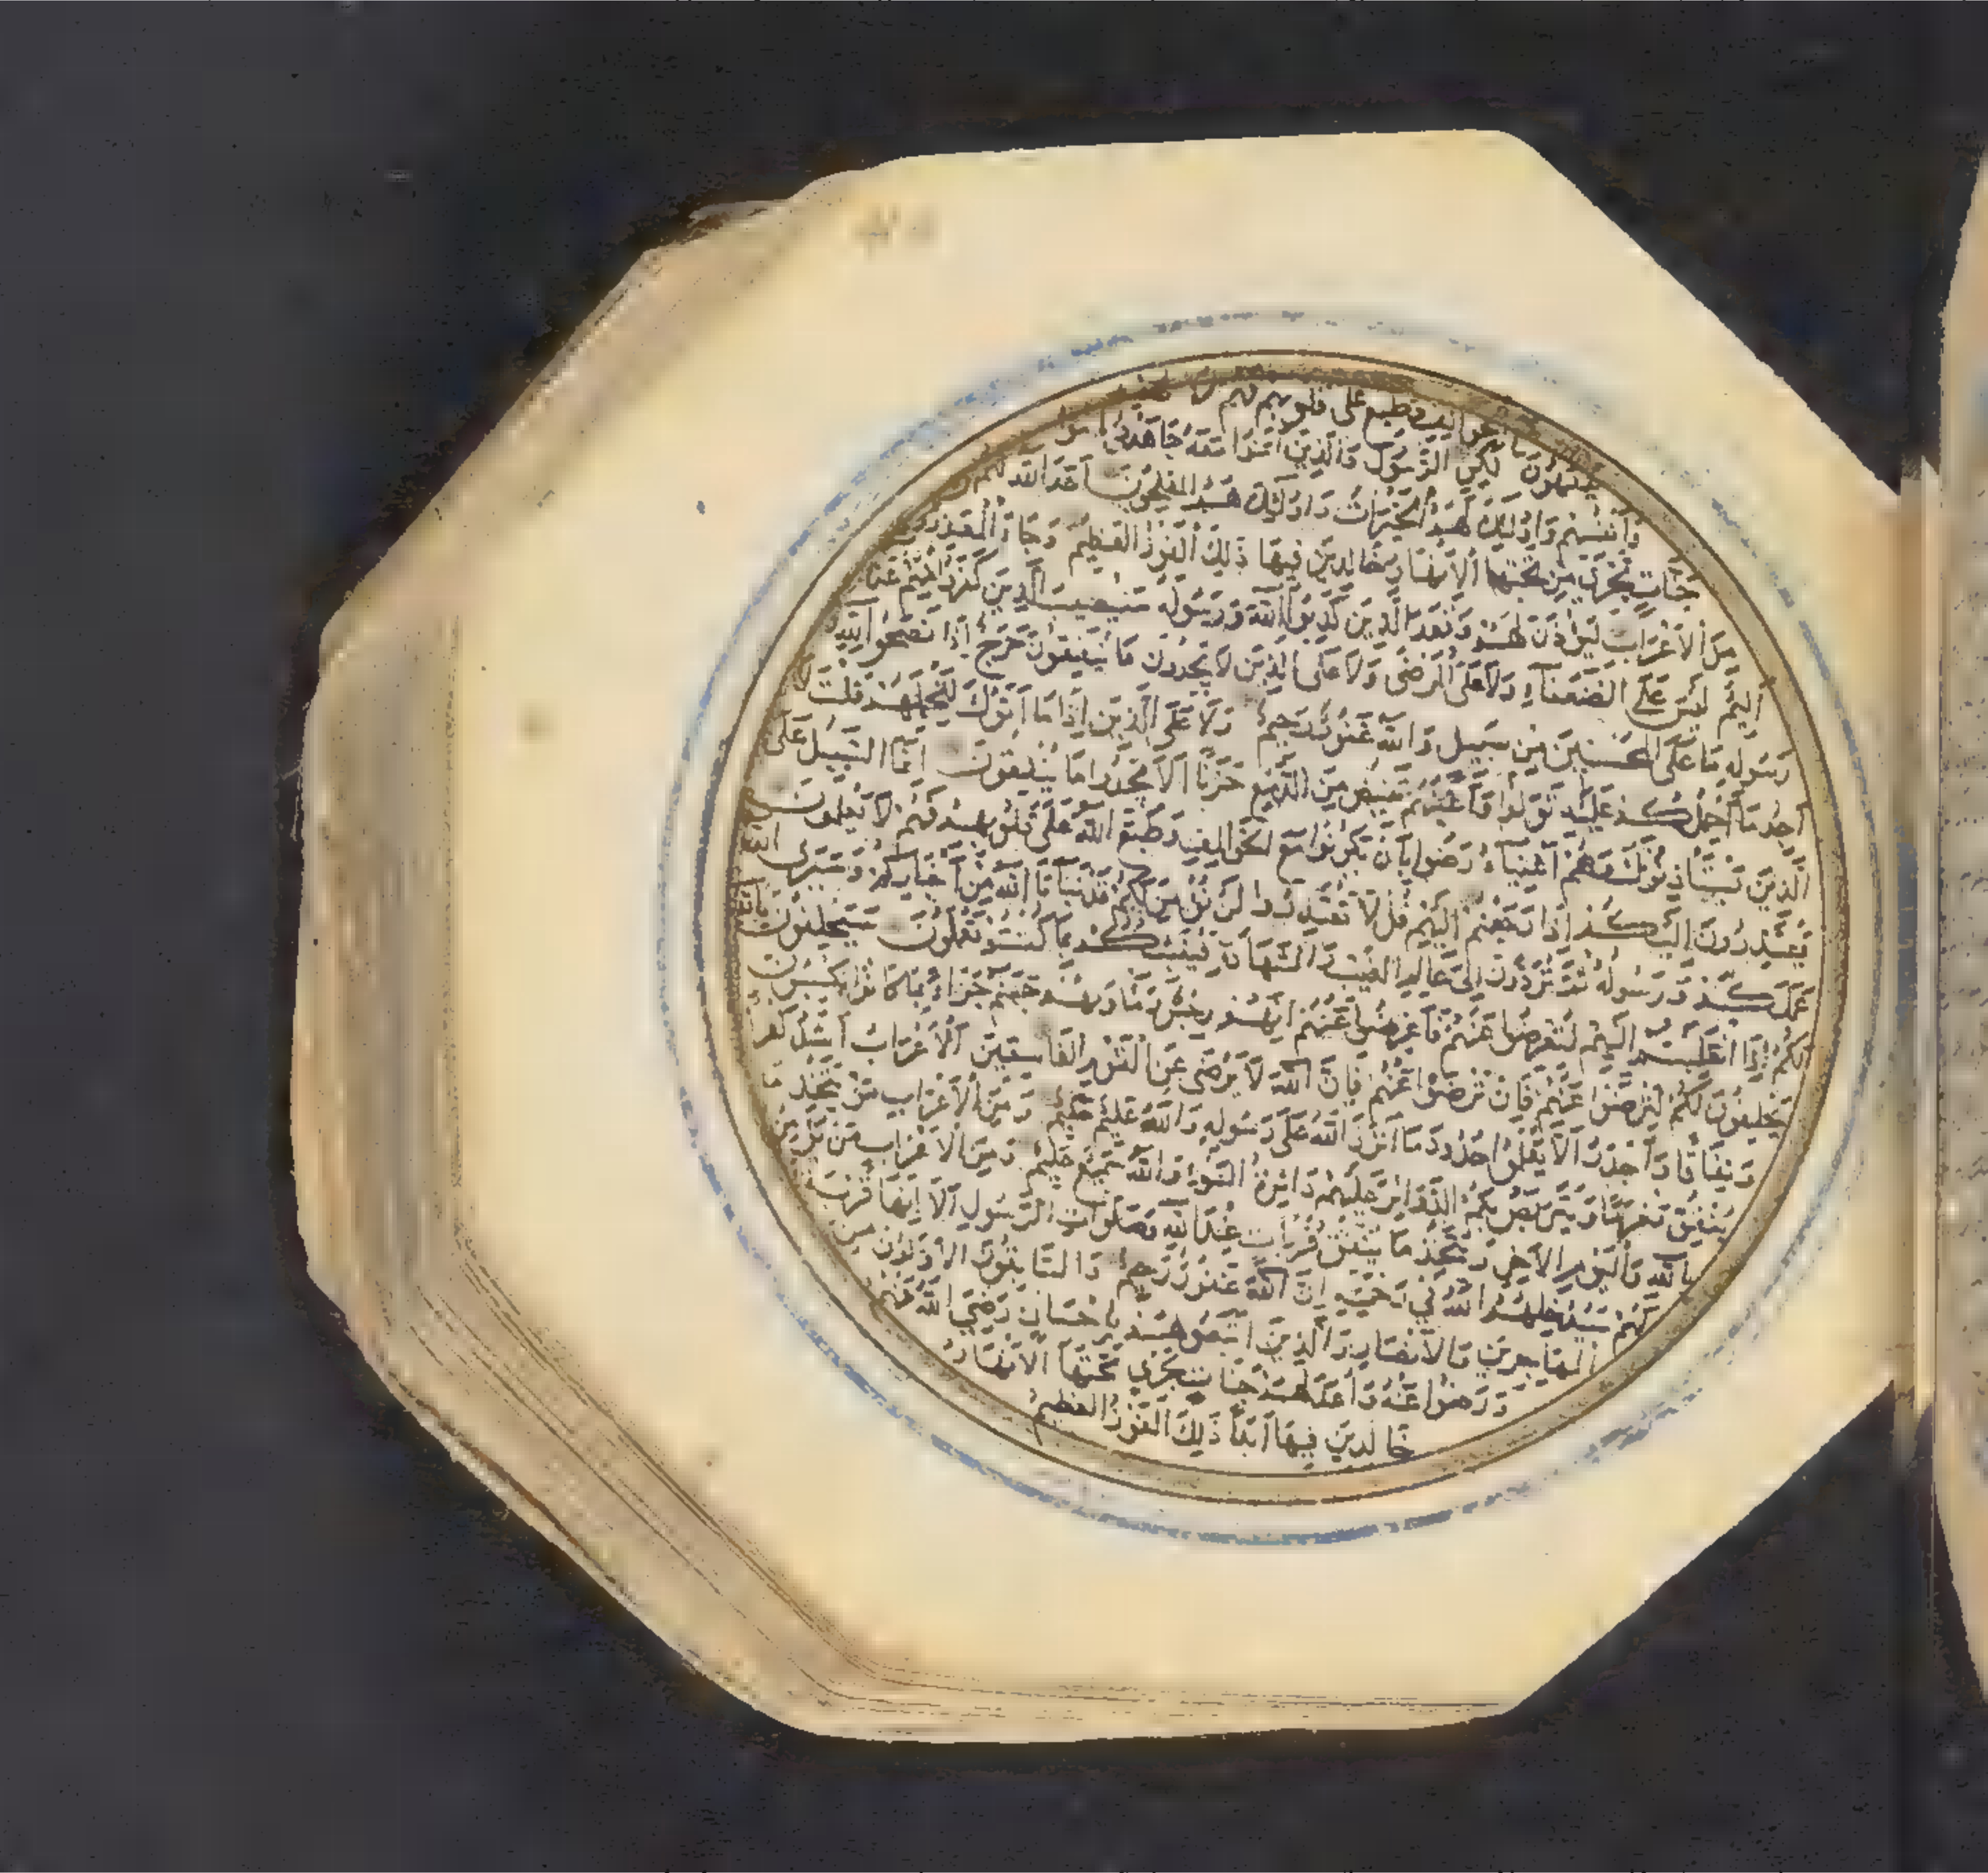 وطبع على قلوبهم فهم لا
يفقهون لكن الرسول والذين امنوا معه جاهدوا
وانفسهم واولئك لهم الخيرات واولئك هم المفلحون اعد الله لهم
جنات تجري من تحتها الانهار خالدين فيها ذلك الفوز العظيم وجاء المعذرون
من الاعراب ليؤذن لهم وقعد الذين كذبوا الله ورسوله سيصيب الذين كفروا منهم عذاب
اليم ليس على الضعفاء ولا على المرضى ولا على الذين لا يجدون ما ينفقون حرج اذا نصحوا لله
ورسوله ما على المحسنين من سبيل والله غفور رحيم ولا على الذين اذا ما اتوك لتحملهم قلت لا
اجد ما احملكم عليه تولوا واعينهم تفيض من الدمع حزنا الا يجدوا ما ينفقون انما السبيل على
الذين يستأذنونك وهم اغنياء رضوا بان يكونوا مع الخوالف وطبع الله على قلوبهم فهم لا يعلمون
يعتذرون اليكم اذا رجعتم اليهم قل لا تعتذروا لن نؤمن لكم قد نبأنا الله من اخباركم وسيرى الله
عملكم ورسوله ثم تردون الى عالم الغيب والشهادة فينبئكم بما كنتم تعملون سيحلفون بالله
لكم اذا انقلبتم اليهم لتعرضوا عنهم فاعرضوا عنهم انهم رجس ومأويهم جهنم جزاء بما كانوا يكسبون
يحلفون لكم لترضوا عنهم فان ترضوا عنهم فان الله لا يرضى عن القوم الفاسقين الاعراب اشد كفرا
ونفاقا واجدر الا يعلموا حدود ما انزل الله على رسوله والله عليم حكيم ومن الاعراب من يتخذ ما
ينفق مغرما ويتربص بكم الدوائر عليهم دائرة السوء والله سميع عليم ومن الاعراب من يؤمن
بالله واليوم الاخر ويتخذ ما ينفق قربات عند الله وصلوات الرسول الا انها قربة
لهم سيدخلهم الله في رحمته ان الله غفور رحيم والسابقون الاولون من
المهاجرين والانصار والذين اتبعوهم باحسان رضي الله عنهم
ورضوا عنه واعد لهم جنات تجري تحتها الانهار
خالدين فيها ابدا ذلك الفوز العظيم